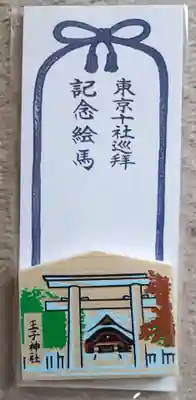 東京十社巡拝
記念絵馬
王子神社